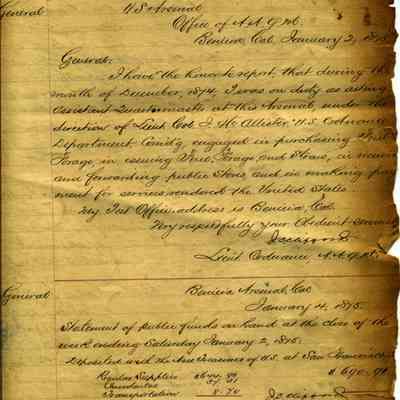 General
U.S Arsenal
Office of A.A.Q.M.
Benicia, Cal. January 2, 1875.
General:
I have the honor to report, that during the
month of December, 1874, I was on duty as acting
assistant Quartermaster at this Arsenal, under the
direction of Lieut Col. J. McAllister, U.S. Ordnance
Department Comd'g, engaged in purchasing
Forage, in issuing Fuel, Forage and Straw, in
and forwarding public Stores, and in making pay
ment for services rendered the United States.
My Post Office address is Benicia, Cal.
Very respectfully your Obedient servant
Lieut Ordnance, A.A.Q.M.
General
Benicia Arsenal, Cal
January 4, 1875.
Statement of public funds on hand at the close of the
week ending Saturday January 2, 1875.
Deposited with the Ass Treasurer of U.S. at San Francisco
$690.91
Regular Supplies
Incidentals
Transportation 8.70